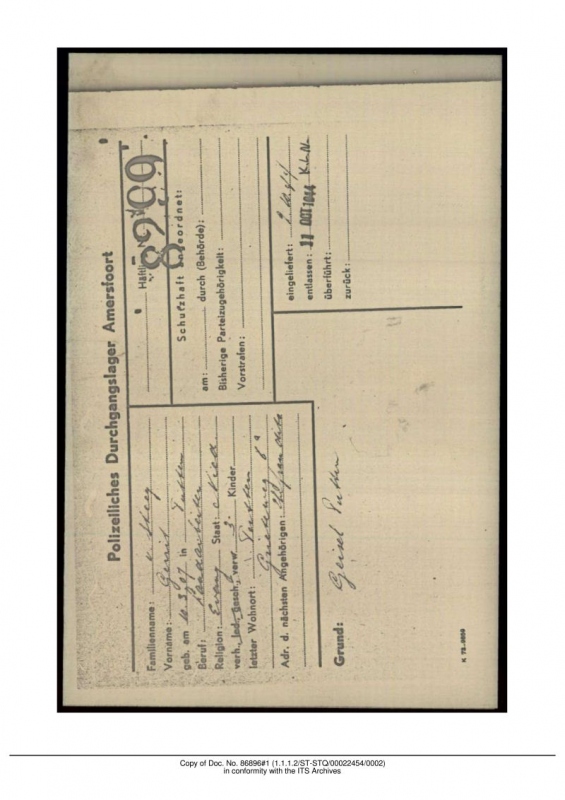 Polizeiliches Durchgangslager Amersfoort
Familienname: v Steeg
Vorname: Gerrit
geb. am 10.3.07 in Putten
Beruf: Landarbeiter
Religion: Evang Staat: Nied
verh., led., gesch., verw 3. Kinder
letzter Wohnort: Putten
8ª
Adr. d. nächsten Angehörigen:
Häftl. Nr.
8299
Schutzhaft angeordnet:
am: durch (Behörde):
Bisherige Parteizugehörigkeit:
Vorstrafen:
eingeliefert:
entlassen: 11 OKT 1944 K.L.N.
überführt:
zurück:
Grund: Geisel Putten
Copy of Doc. No. 86896#1 (1.1.1.2/ST-STQ/00022454/0002)
in conformity with the ITS Archives